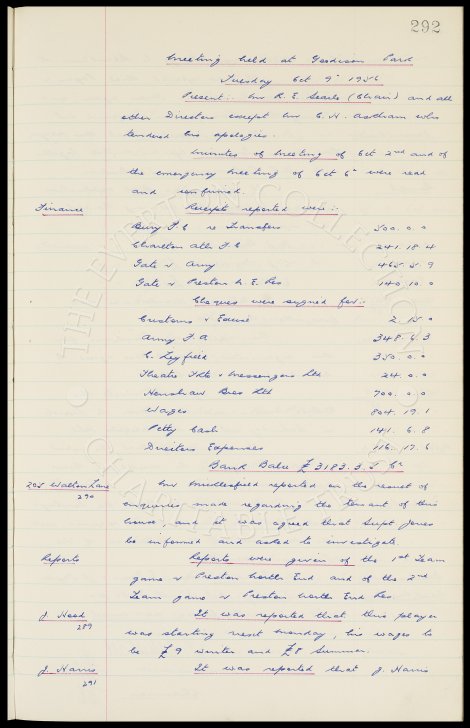 292
Meeting held at Goodison Park
Tuesday Oct 9th 1956
Present:- Mr R. E. Searle (Chair) and all
other Directors except Mr C. H. Askham who
tendered his apologies.
Minutes of Meeting of Oct 2nd and of
the emergency Meeting of Oct 6th were read
and confirmed.
Finance Receipts reported were:-
Bury F C re Transfers 500. 0. 0
Charlton Ath F C 241. 18. 4
Gate v Army 465. 5. 9
Gate v Preston N. E. Res 140. 10. 0
Cheques were signed for:-
Customs & Excise 2. 15. 0
Army F. A 348. 6. 3
C. Leyfield 350. 0. 0
Theatre Tkts & Messengers Ltd 24. 0. 0
Henshaw Bros Ltd 700. 0. 0
Wages 804. 19. 1
Petty Cash 141. 6. 8
Directors Expenses 116. 17. 6
Bank Balce £3183. 3. 5 Cr
205 Walton Lane Mr Micklesfield reported on the result of
290 enquiries made regarding the tenant of this
house, and it was agreed that Supt Jones
be informed and asked to investigate
Reports Reports were given of the 1st Team
game v Preston North End and of the 2nd
Team game v Preston North End Res.
J. Hood It was reported that this player
289 was starting next Monday, his wages to
be £9 winter and £8 Summer.
J. Harris It was reported that J. Harris
291
© THE EVERTON COLLECTION
© CHARITABLE TRUST